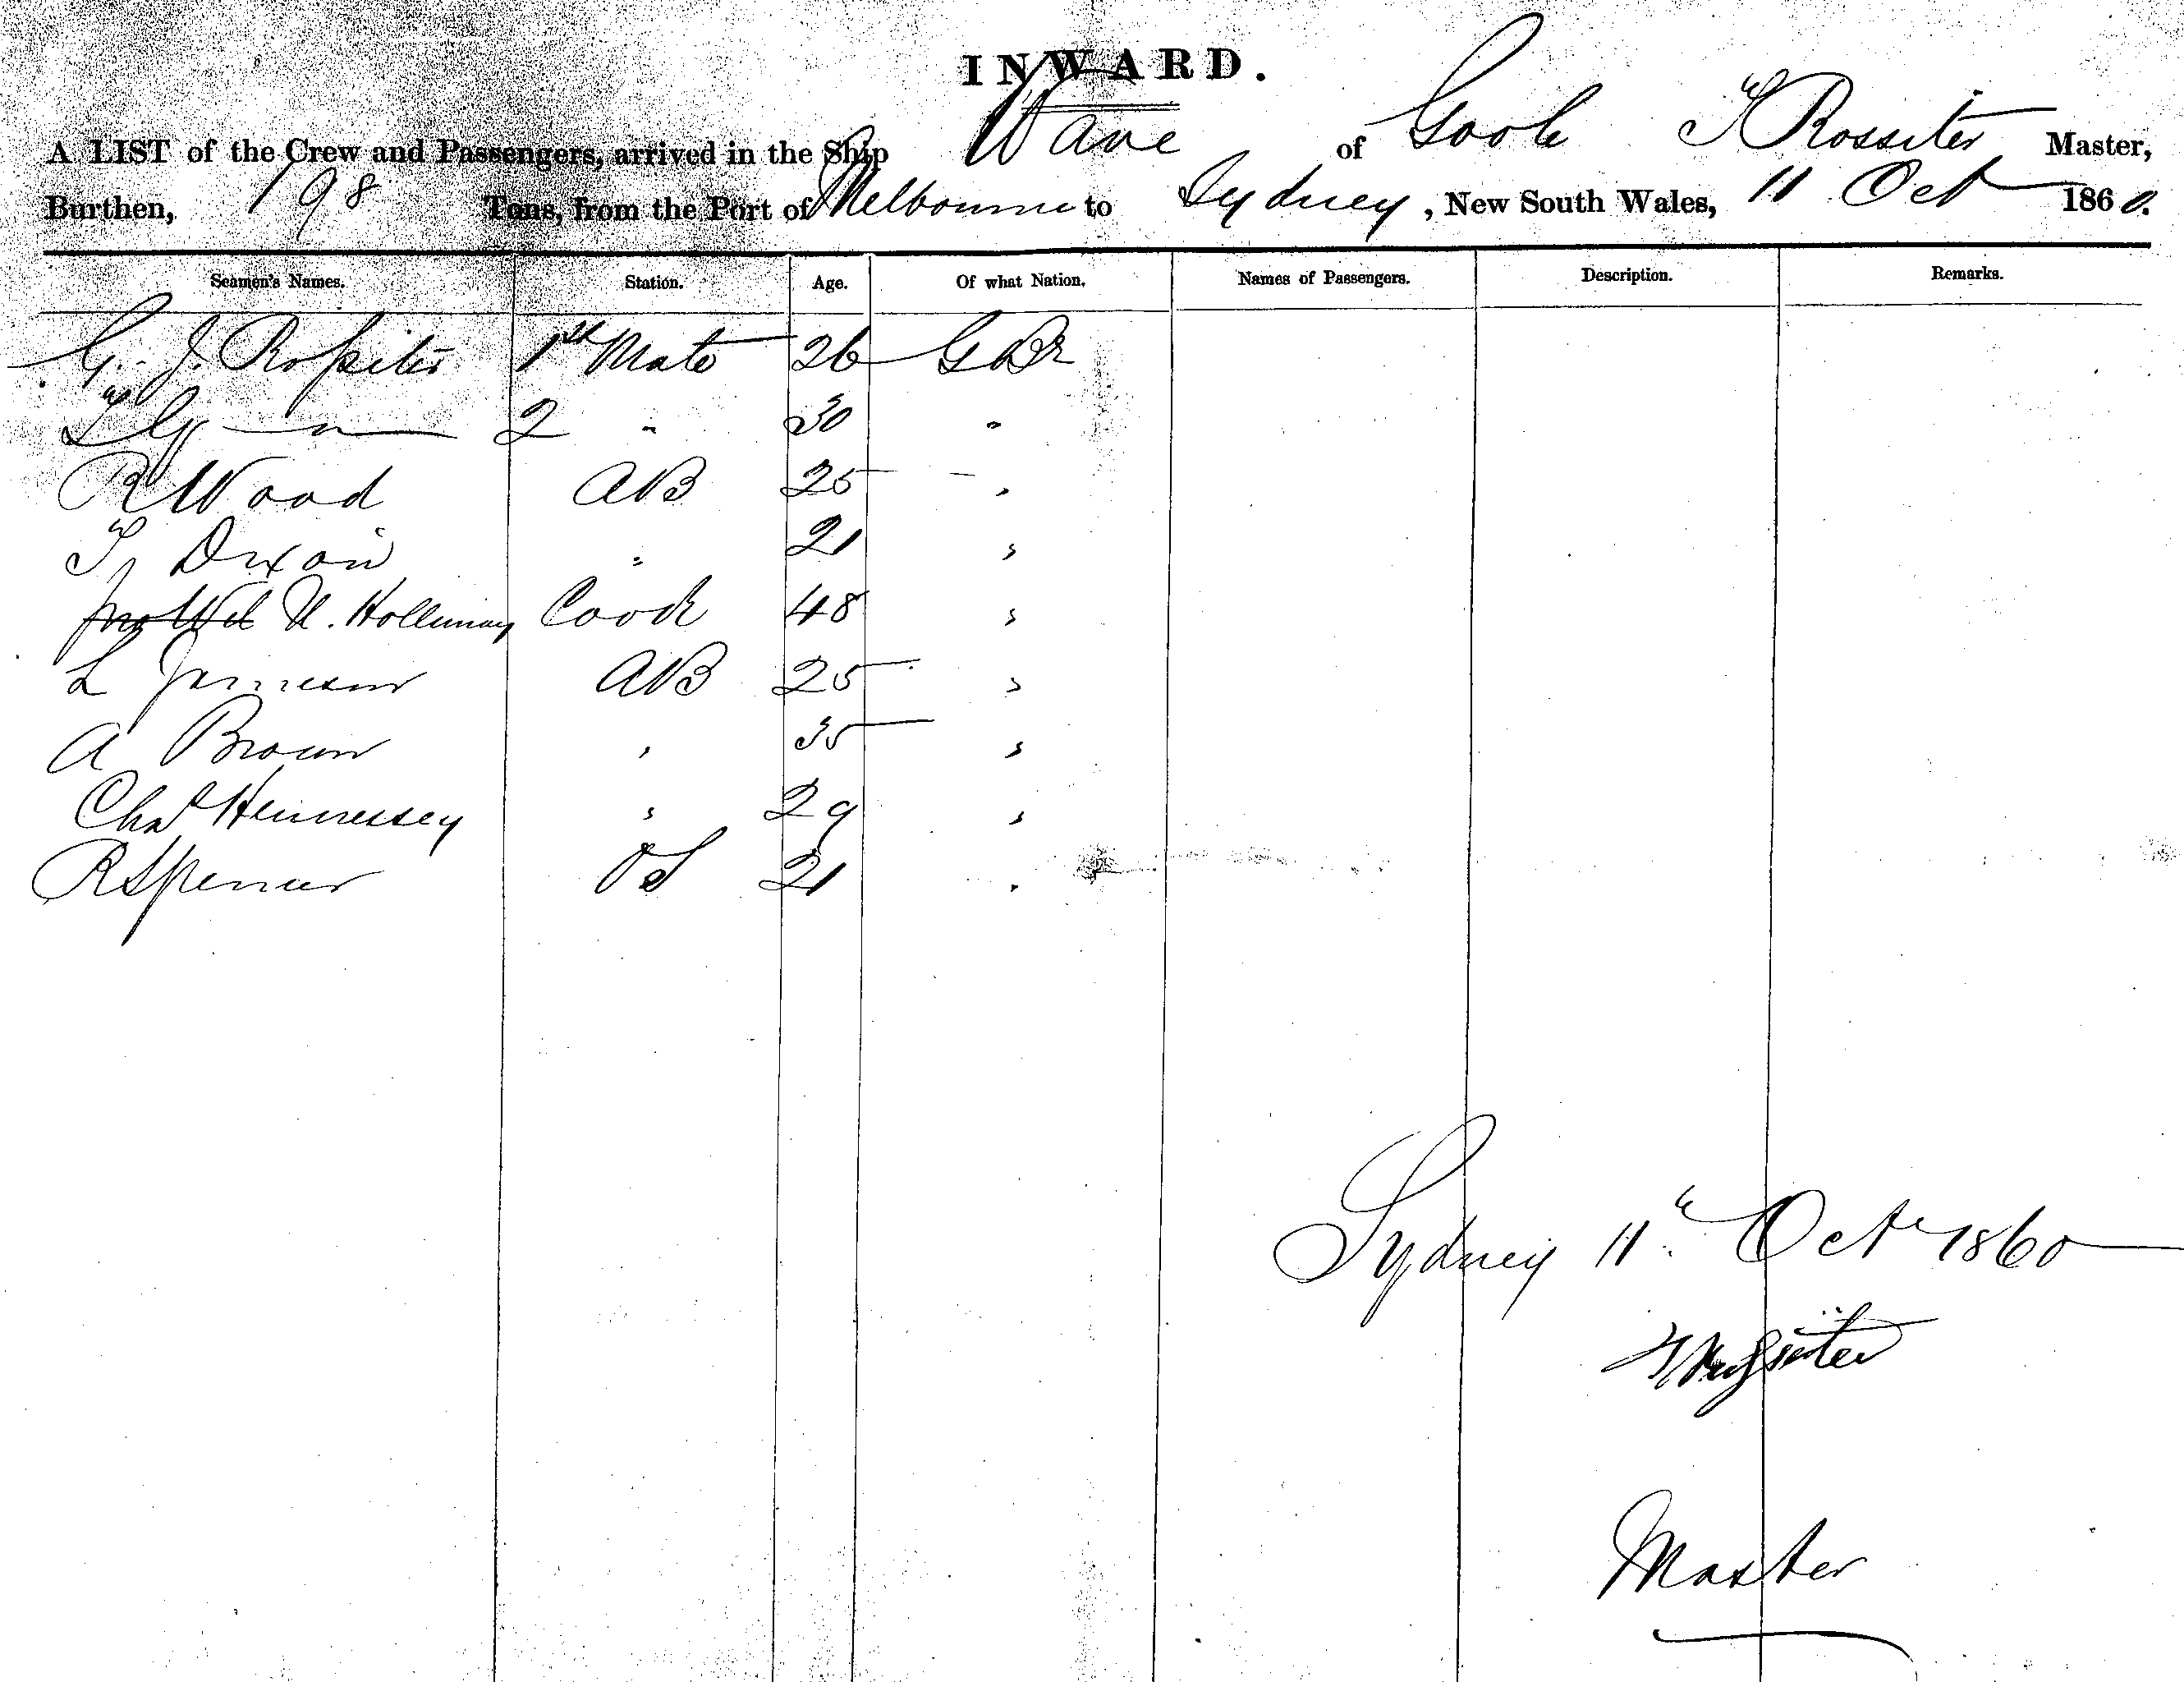 INWARD.
A LIST of the Crew and Passengers, arrived in the Ship Wave of Goole T Rossiter Master,
Burthen, 198 Tons, from the Port of Melbourne to Sydney, New South Wales, 11 Oct 1860.
Seamen's Names. Station. Age. Of what Nation. Names of Passengers. Description. Remarks.
G. J. Rossiter 1st Mate 26 G Br
2 " 30 "
R Wood AB 25 "
T Dixon " 21 "
Cook 48 "
L Jameson AB 25 "
A Brown " 35 "
Chas Hennessey " 29 "
R Spencer OS 21 "
Sydney 11th Oct 1860
T Rossiter
Master